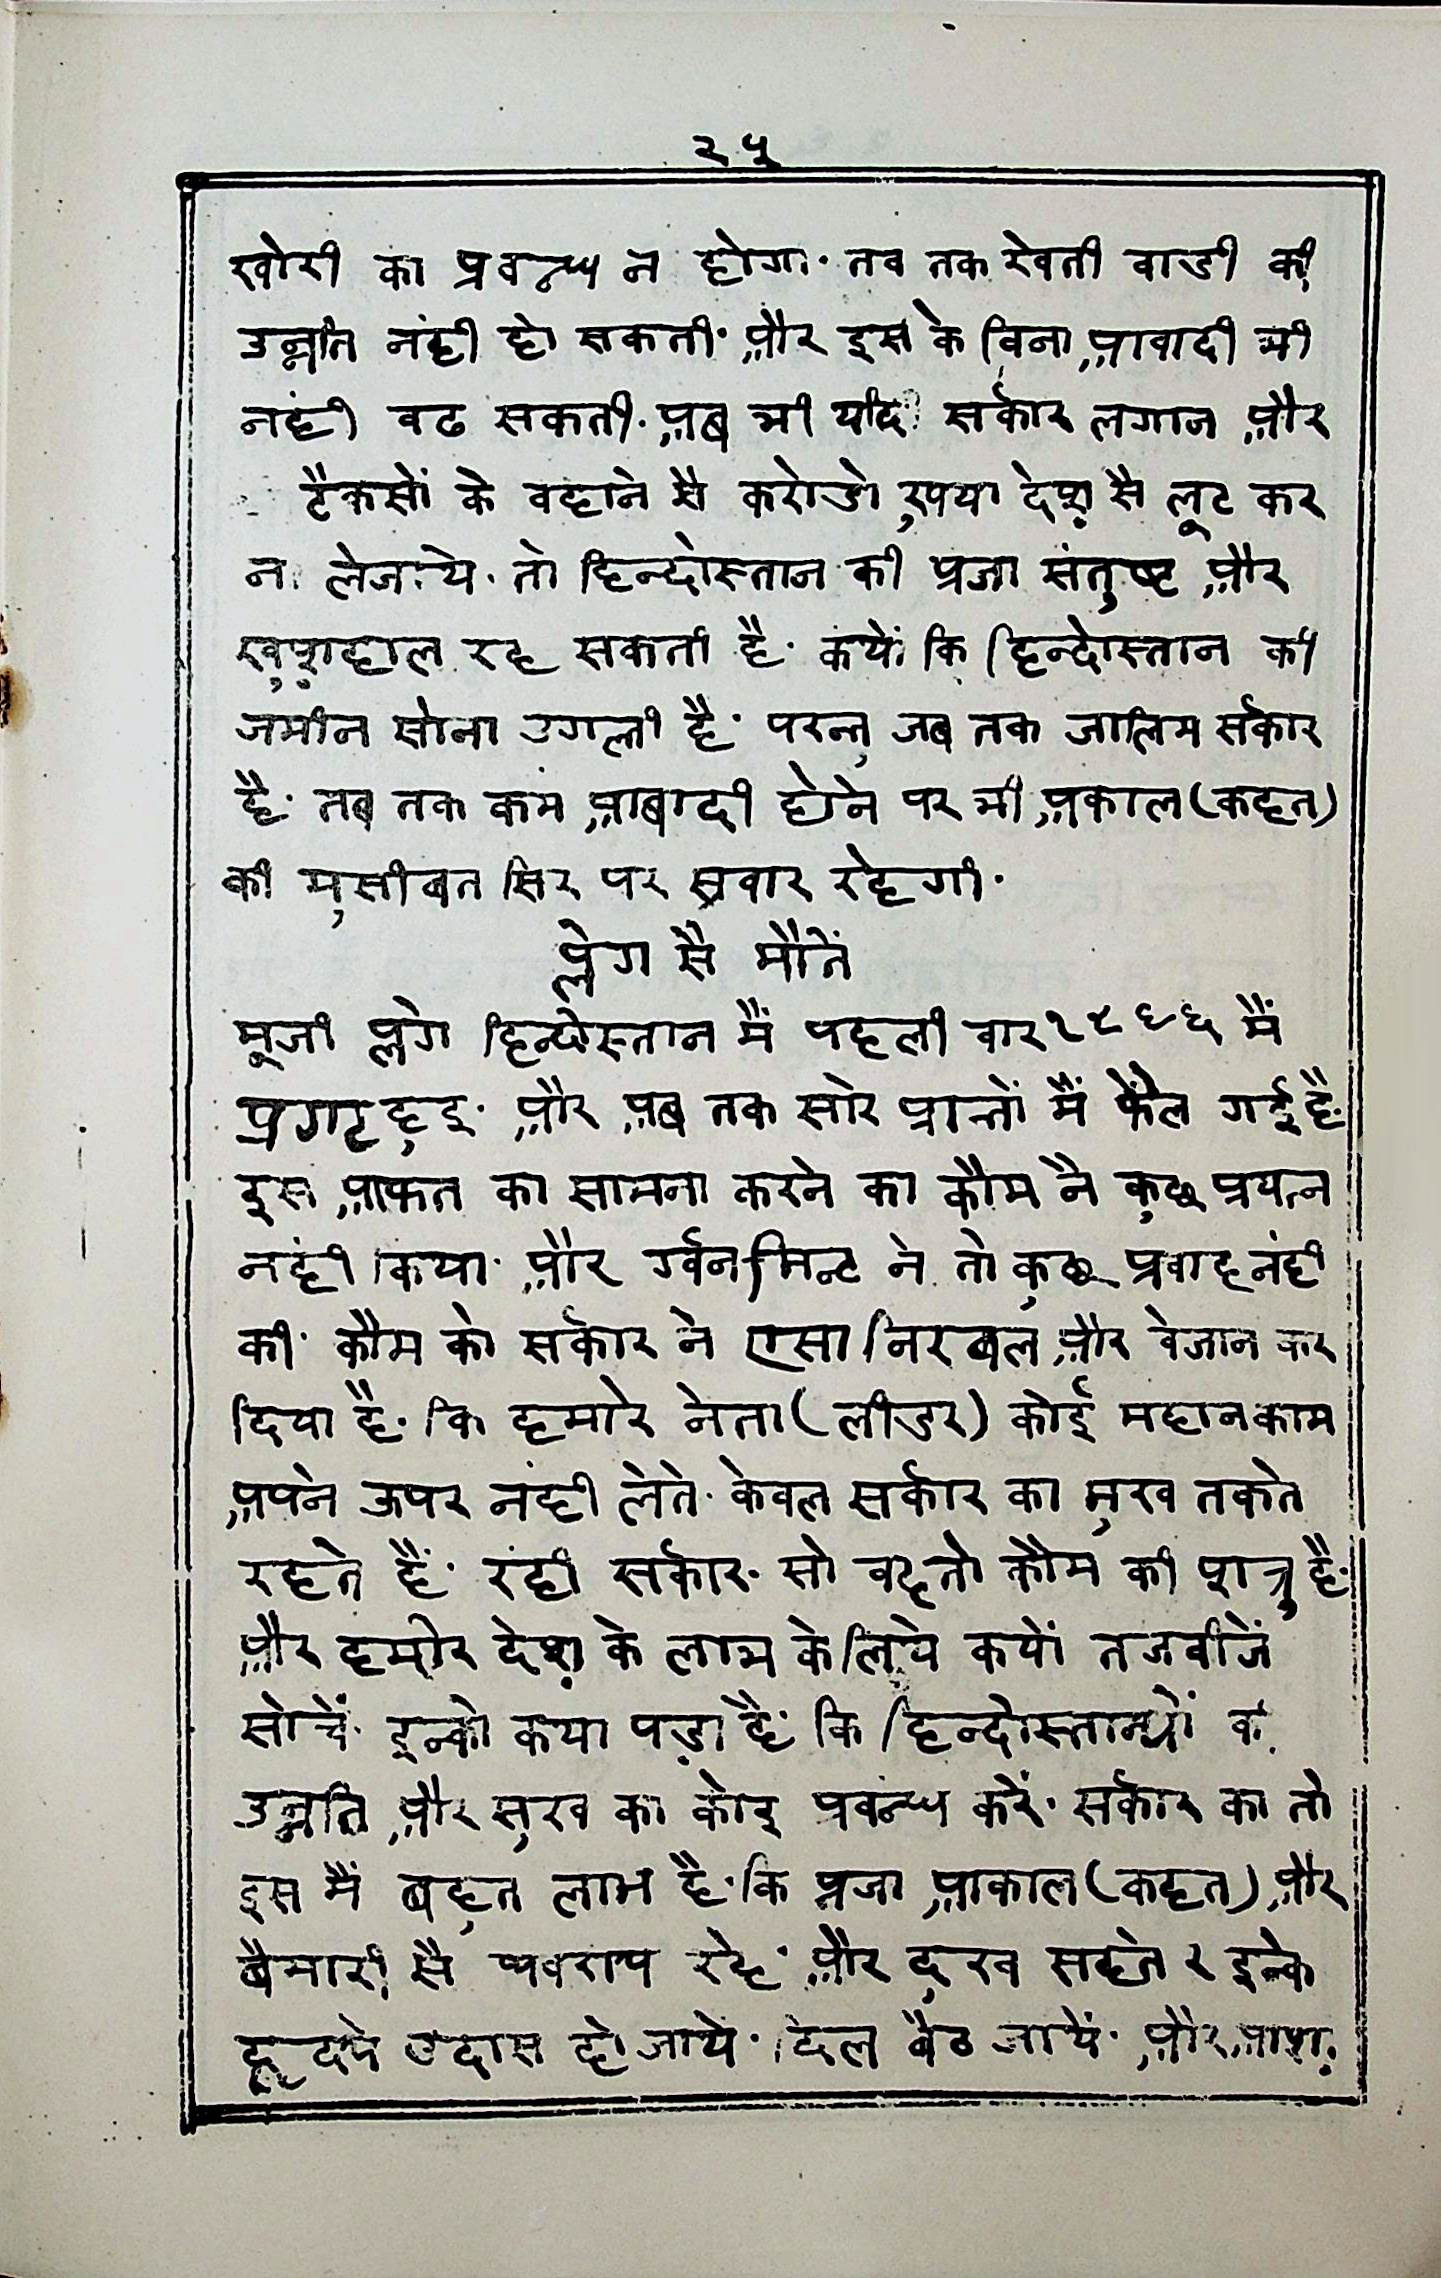 २५
खोरी का प्रवन्ध न होगा· तव तक खेती वाडी की
उन्नति नंही हो सकती· और इस के विना आवादी भी
नंही वढ सकती· अब भी यदि सर्कार लगान और
टैकसों के वहाने सै करोडो रुपया देश सै लूट कर
न लेजाये· तो हिन्दोस्तान की प्रजा संतुष्ट और
खुशहाल रह सकती है· कयों कि हिन्दोस्तान की
जमीन सोना उगलती है· परन्तु जब तक जालिम सर्कार
है· तब तक कम आबादी होने पर भी अकाल (कहत)
की मुसीबत सिर पर सवार रहेगी·
प्लेग सै मौतें
मूजी प्लेग हिन्दोस्तान मैं पहली वार १८९६ मैं
प्रगट हुइ· और अब तक सारे प्रान्तों मैं फैल गई है·
इस आफत का सामना करने का कौम नै कुछ प्रयत्न
नंही किया· और गर्वनमिन्ट ने तो कुछ प्रवाह नंही
की· कौम को सर्कार ने एसा निरबल और वेजान कर
दिया है· कि हमारे नेता (लीडर) कोई महान काम
अपने ऊपर नंही लेते· केवल सर्कार का मुख तकते
रहते हैं· रंही सर्कार· सो वह तो कौम की शत्रु है·
और हमारे देश के लाभ के लिये कयों तजवीजें
सोचें· इन्को कया पडा है· कि हिन्दोस्तान्यों की
उन्नति और सुख का कोइ प्रवन्ध करें· सर्कार का तो
इस मैं बहुत लाभ है· कि प्रजा आकाल (कहत) और
बैमारी सै रहे· और दुख सहते २ इन्के
हृदये उदास हो जाये· दिल बैठ जायें· और आश